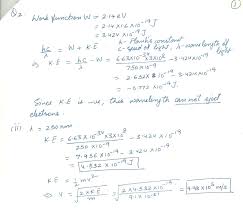 ①
Q2. Work function W = 2.14 eV
= 2.14 x 1.6 x 10^-19 J
= 3.424 x 10^-19 J
hc/λ = W + KE
h - Planck's constant
c - speed of light, λ - wavelength of light
⇒ KE = hc/λ - W = 6.63x10^-34 x 3x10^8 / 750 x 10^-9 - 3.424 x 10^-19
= 2.652 x 10^-19 J - 3.424 x 10^-19
= -0.772 x 10^-19 J
Since KE is -ve, this wavelength can not eject
electrons.
(ii) λ = 250 nm
KE = 6.63x10^-34 x 3x10^8 / 250 x 10^-9 - 3.424 x 10^-19
= 7.956 x 10^-19 - 3.424 x 10^-19
= 4.532 x 10^-19 J
KE = 1/2 mv²
⇒ v = √(2xKE/m) = √(2x4.532x10^-19 / 9.1 x 10^-31) = 9.98 x 10^5 m/s